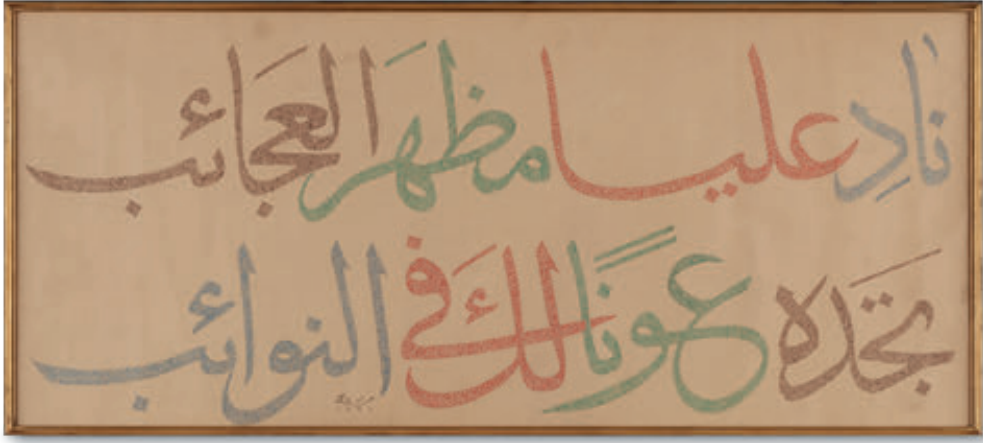 نادِ عليا مظهر العجائب
تجَده عونًا لك في النوائب